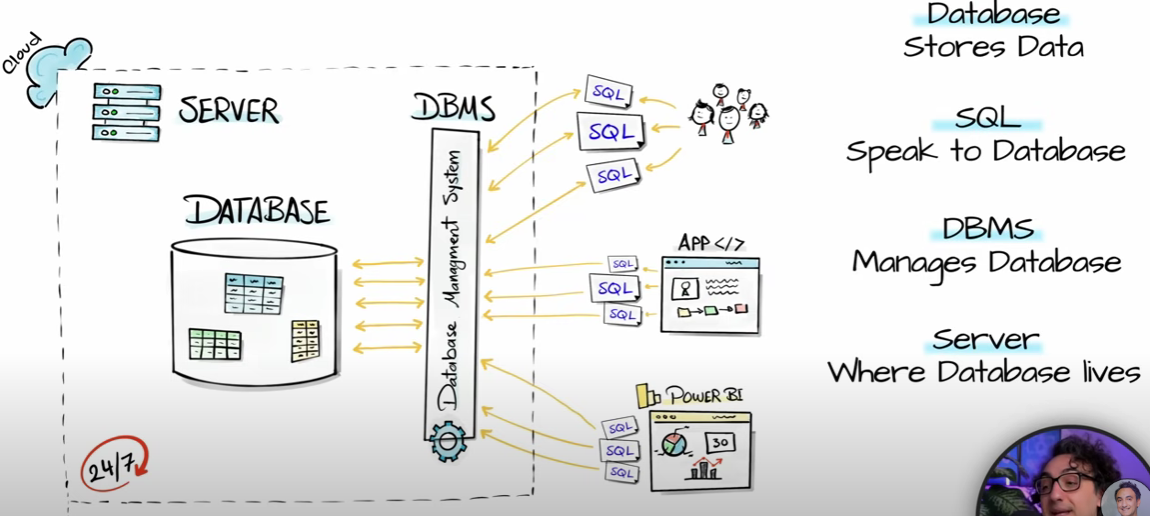 Cloud
SERVER
DATABASE
24/7
DBMS
Database Managment System
SQL
SQL
SQL
APP </>
SQL
SQL
SQL
POWER BI
SQL
SQL
SQL
30
Database
Stores Data
SQL
Speak to Database
DBMS
Manages Database
Server
Where Database lives